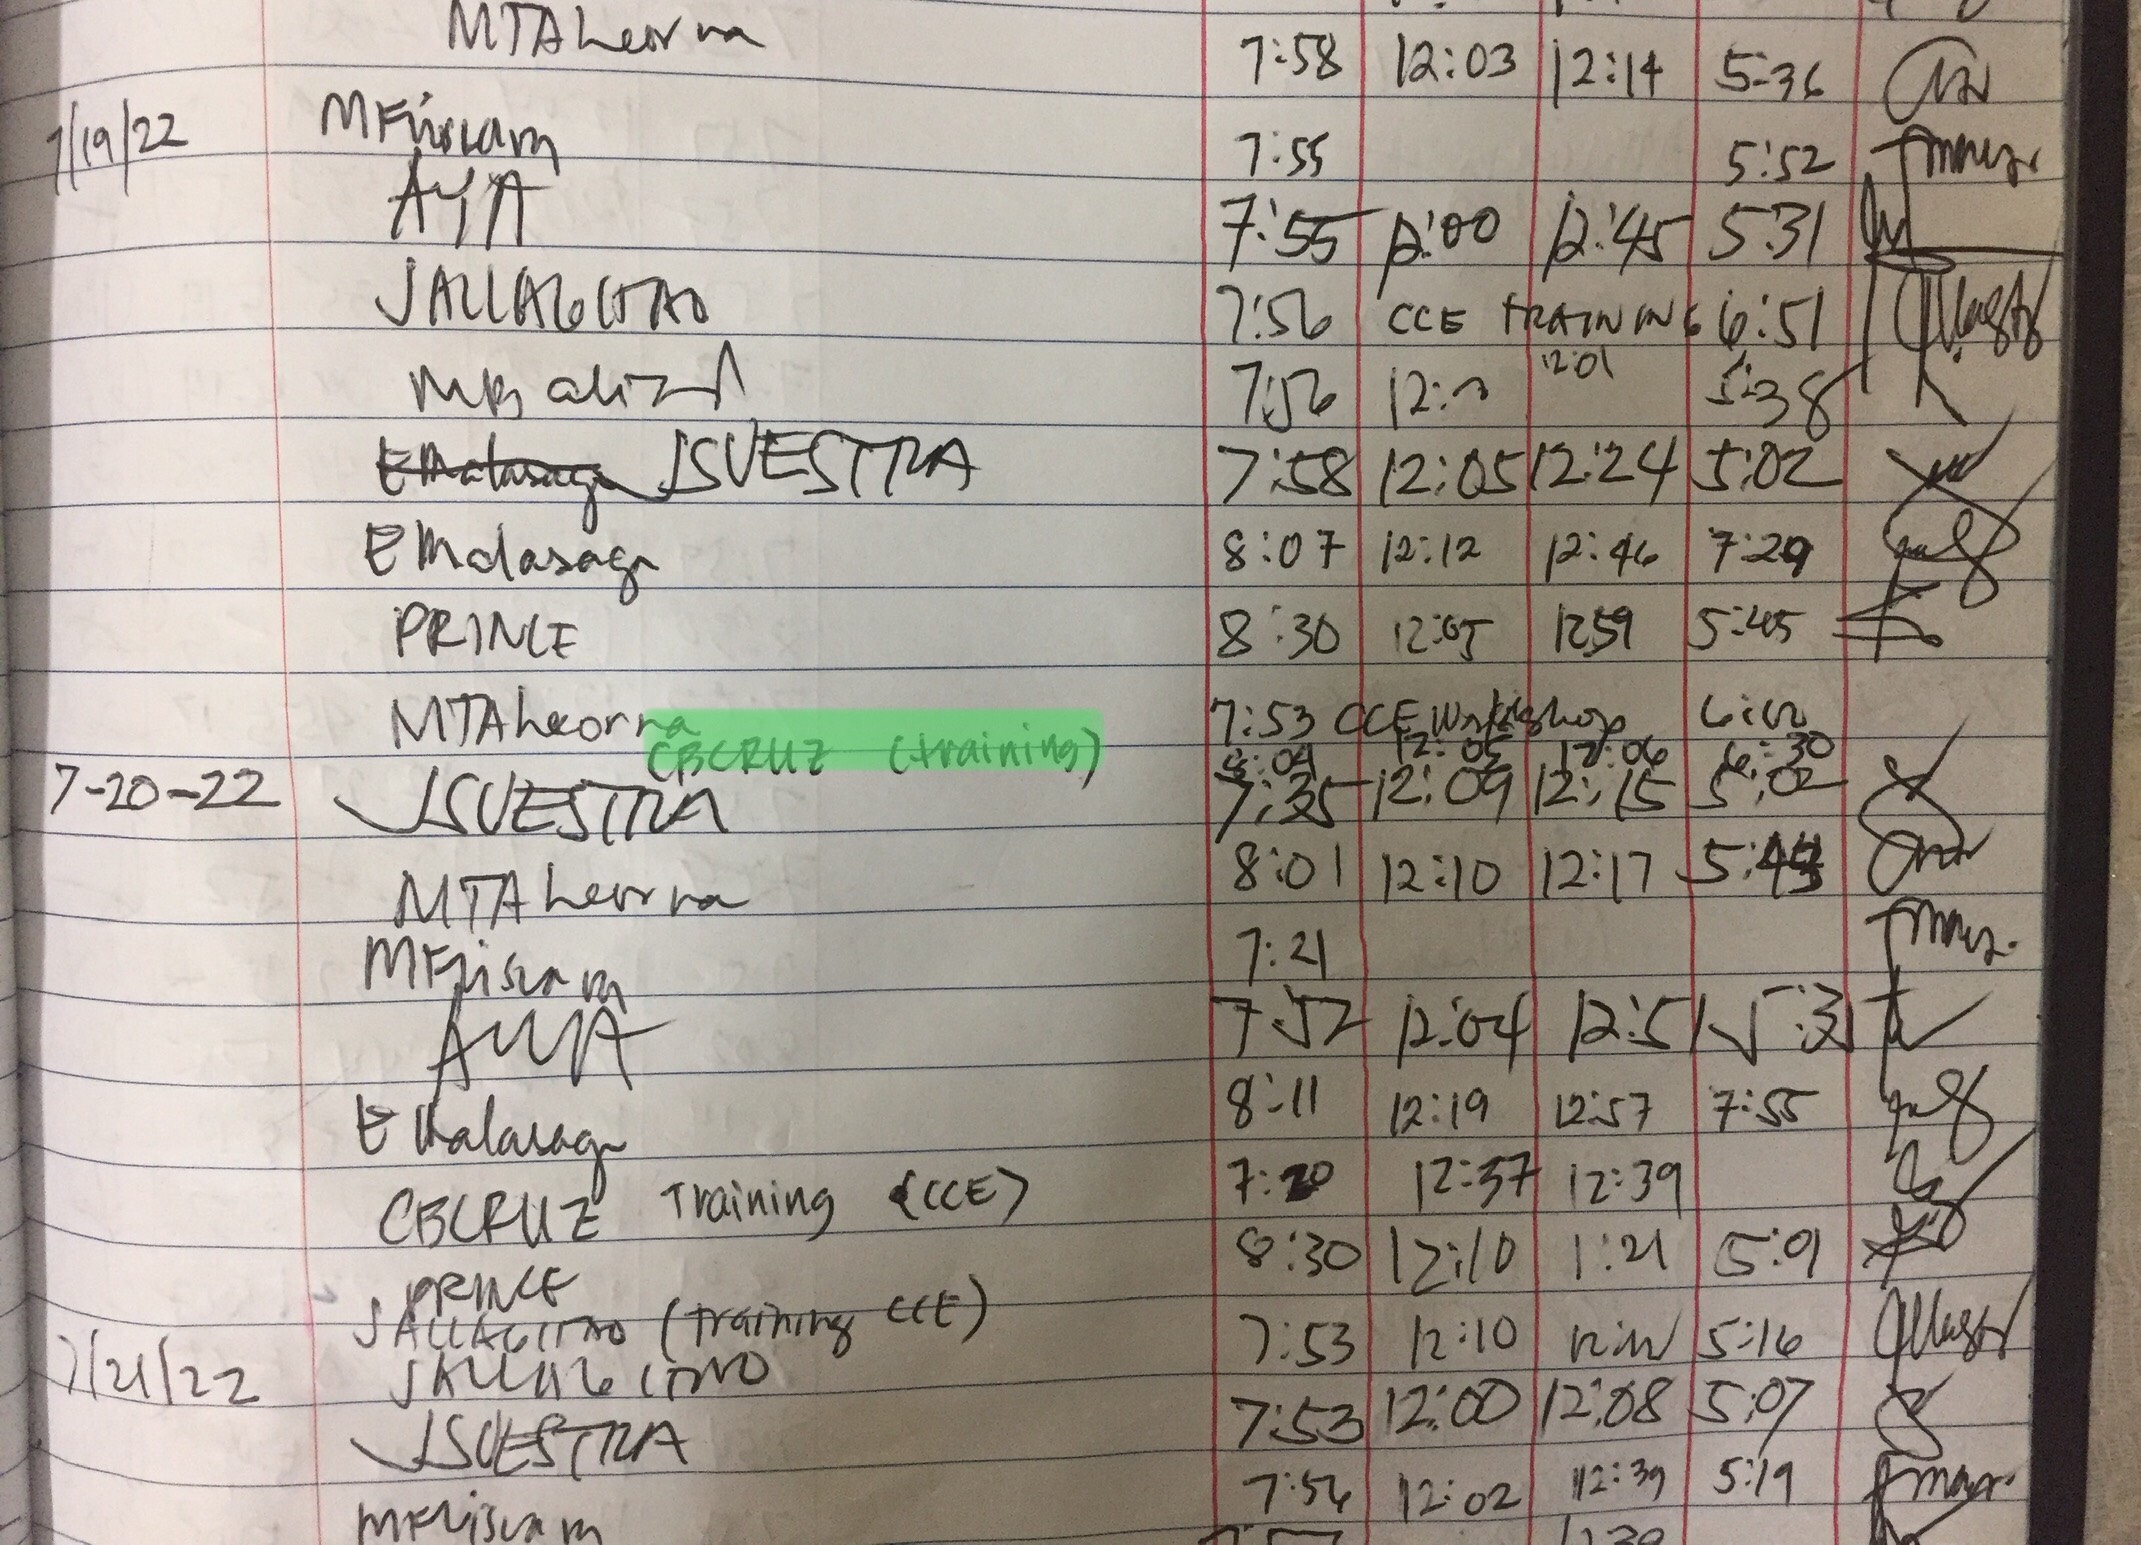 MTAheorna 7:58 12:03 12:14 5:36
7/19/22 7:55 5:52
AYA 7:55 12:00 12:45 5:31
JALLAGITAO 7:56 CCE TRAINING 6:51
7:56 12:01 5:38
JSVESTRA 7:58 12:05 12:24 5:02
EMalasaga 8:07 12:12 12:46 7:29
PRINCE 8:30 12:05 1259 5:45
MTAheorna 7:53 CCE Workshop
CBCRUZ (training) 8:04 12:05 12:06 6:30
7-20-22 JSVESTRA 7:35 12:09 12:15 5:02
MTAheorna 8:01 12:10 12:17
7:21
AYA 7:52 12:04 12:51 5:31
EMalasaga 8:11 12:19 12:57 7:55
CBCRUZ Training (CCE) 7:20 12:37 12:39
PRINCE 8:30 12:10 1:21
JALLAGITAO (training CCE)
7/21/22 JALLAGITAO 7:53 12:10 5:16
JSVESTRA 7:53 12:00 12:08 5:07
7:56 12:02 12:39 5:19